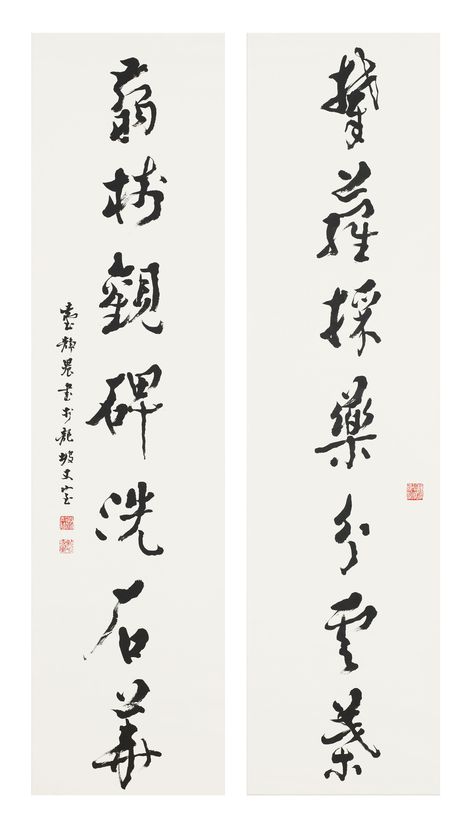 蘿採藥分雲葉
翦觀碑洗石華
臺靜農書於龍坡丈室